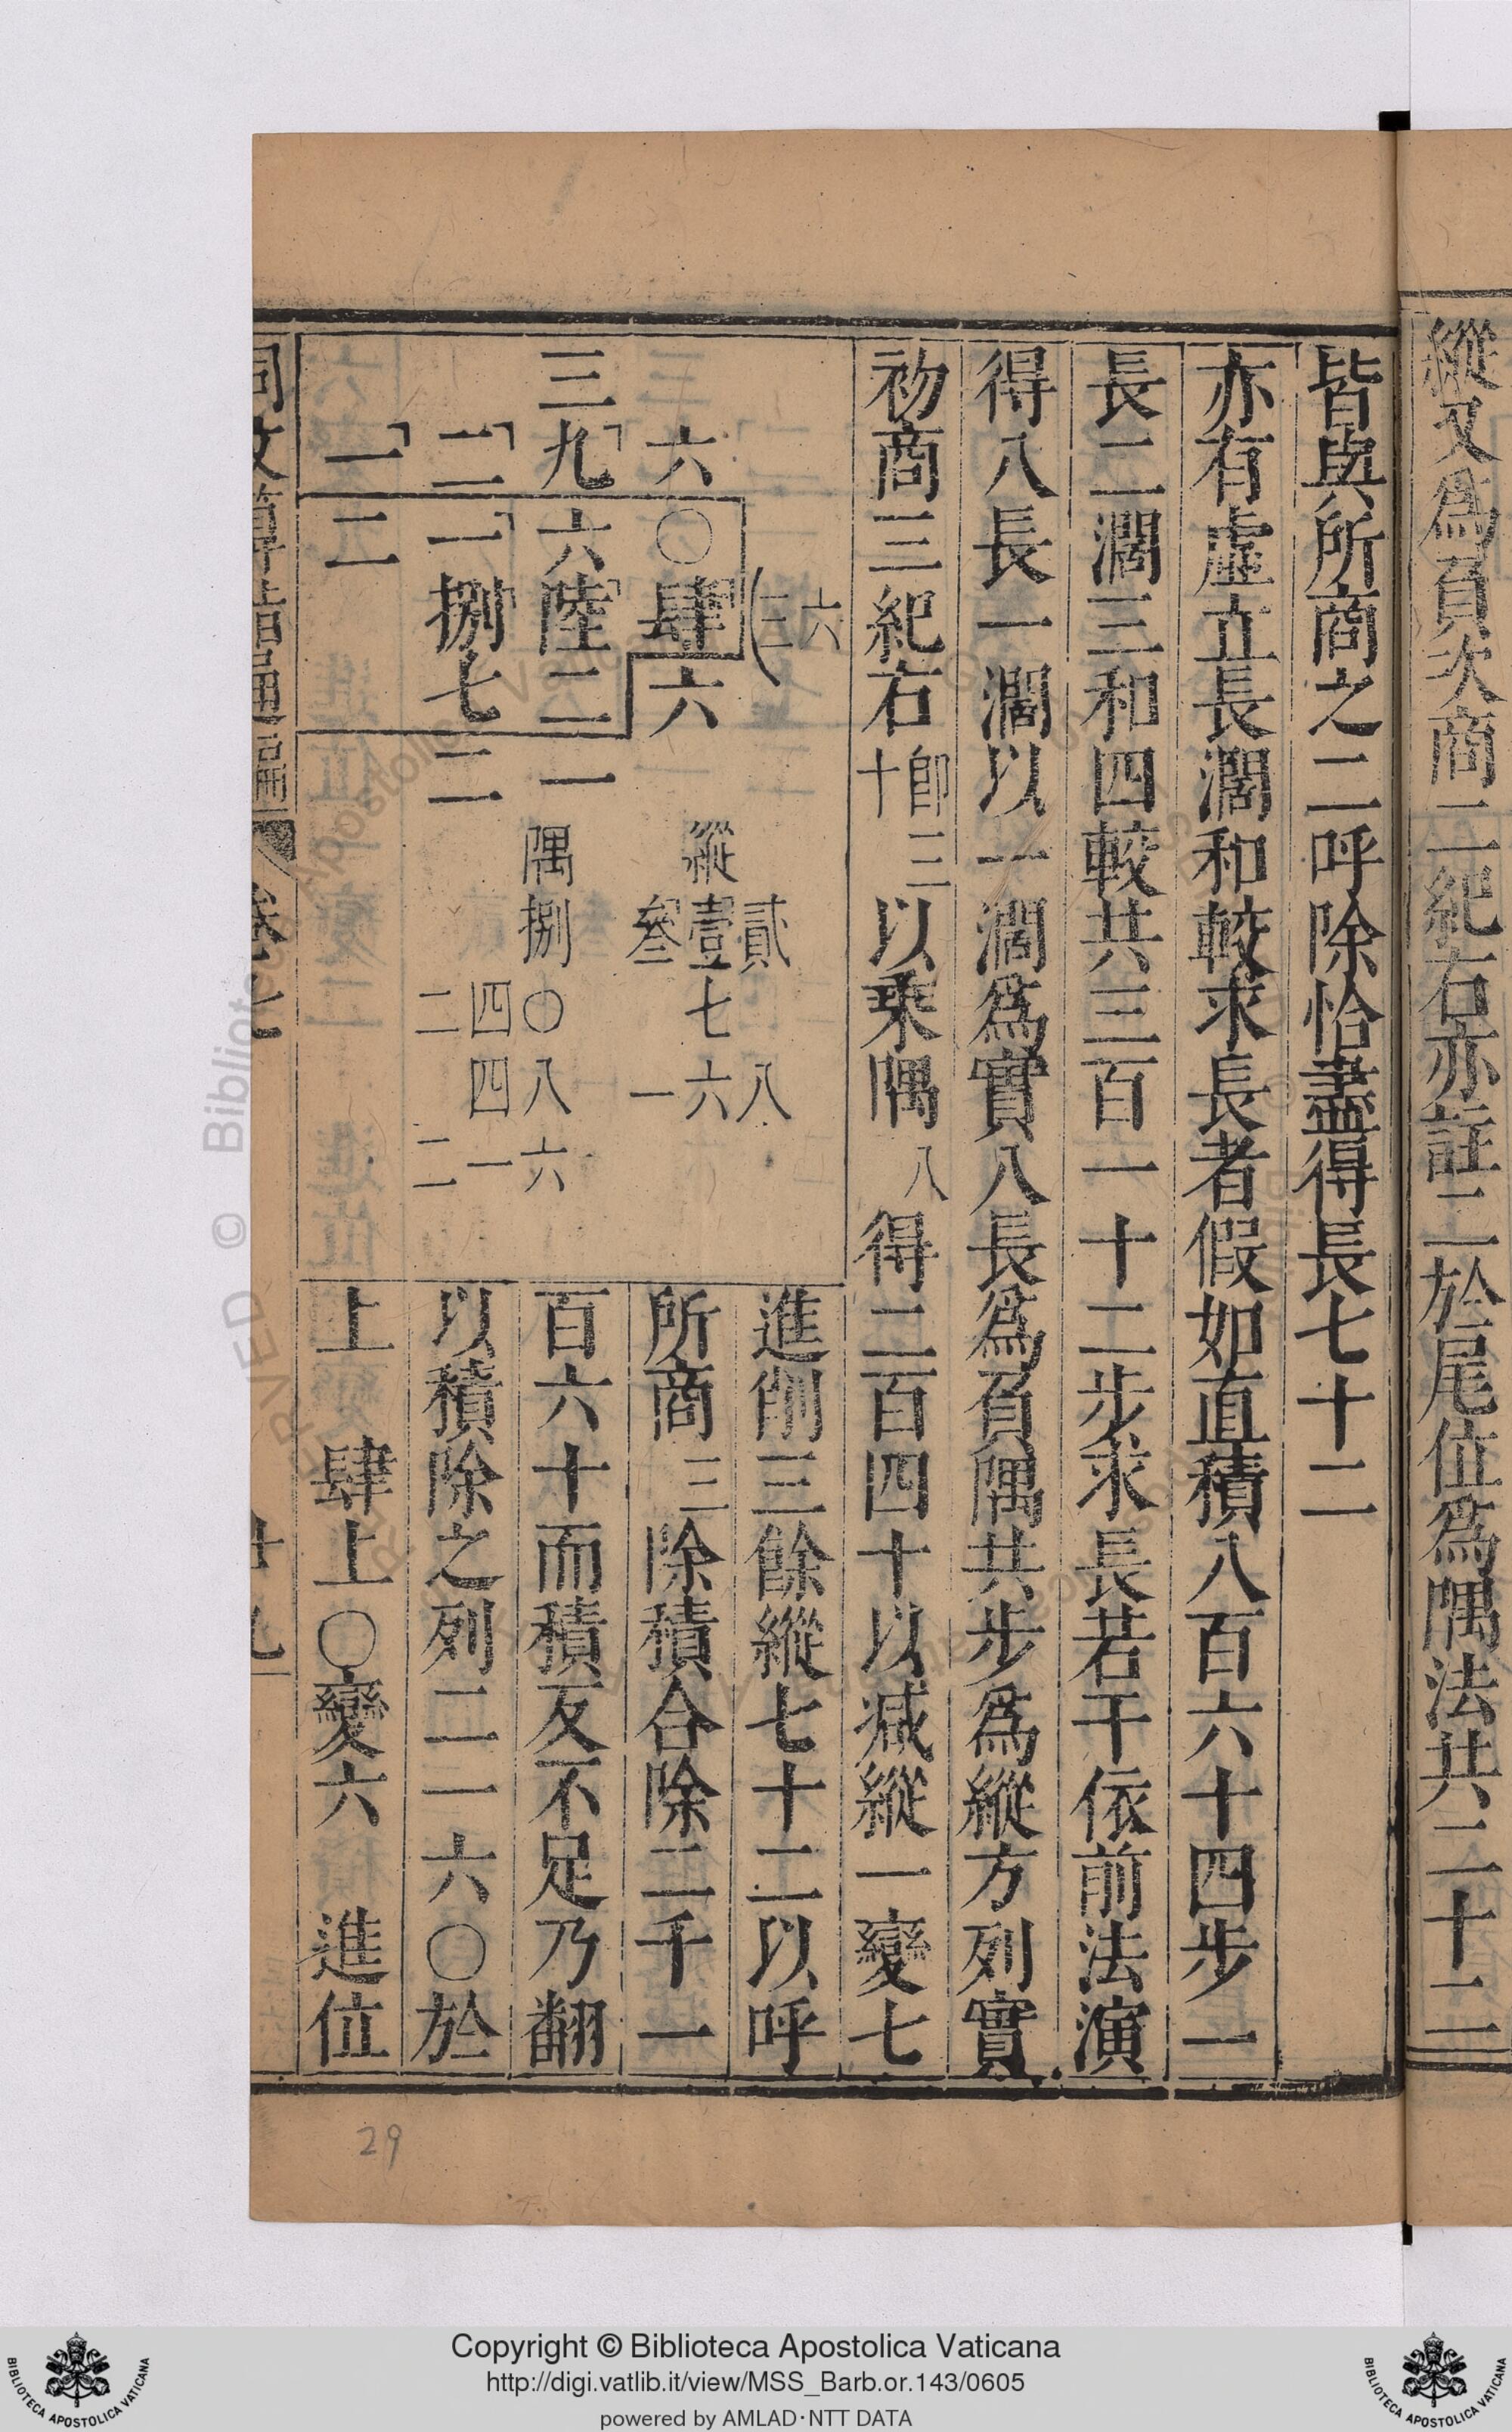 縱又為負次商二紀右亦註二於尾位為隅法共二十二
皆與所商之二呼除恰盡得長七十二
亦有虛立長濶和較求長者假如直積八百六十四步一
長二濶三和四較共三百一十二步求長若干依前法演
得八長一濶以一濶為實八長為負隅共步為縱方列實
初商三紀右即三十以乘隅八得二百四十以減縱一變七
進削三餘縱七十二以呼
所商三除積合除二千一
百六十而積反不足乃翻
以積除之列二一六〇於
上肆上〇變六進位
六
三二
六〇肆六
三九六陸二一
二一捌七二
一二
縱
貳八
壹七六
叄一
隅
捌〇八六
四四一
二二
同文算指通編
卷之七
廿九
29
© Biblioteca Apostolica Vaticana
Copyright © Biblioteca Apostolica Vaticana
http://digi.vatlib.it/view/MSS_Barb.or.143/0605
powered by AMLAD·NTT DATA
BIBLIOTECA APOSTOLICA VATICANA
BIBLIOTECA APOSTOLICA VATICANA